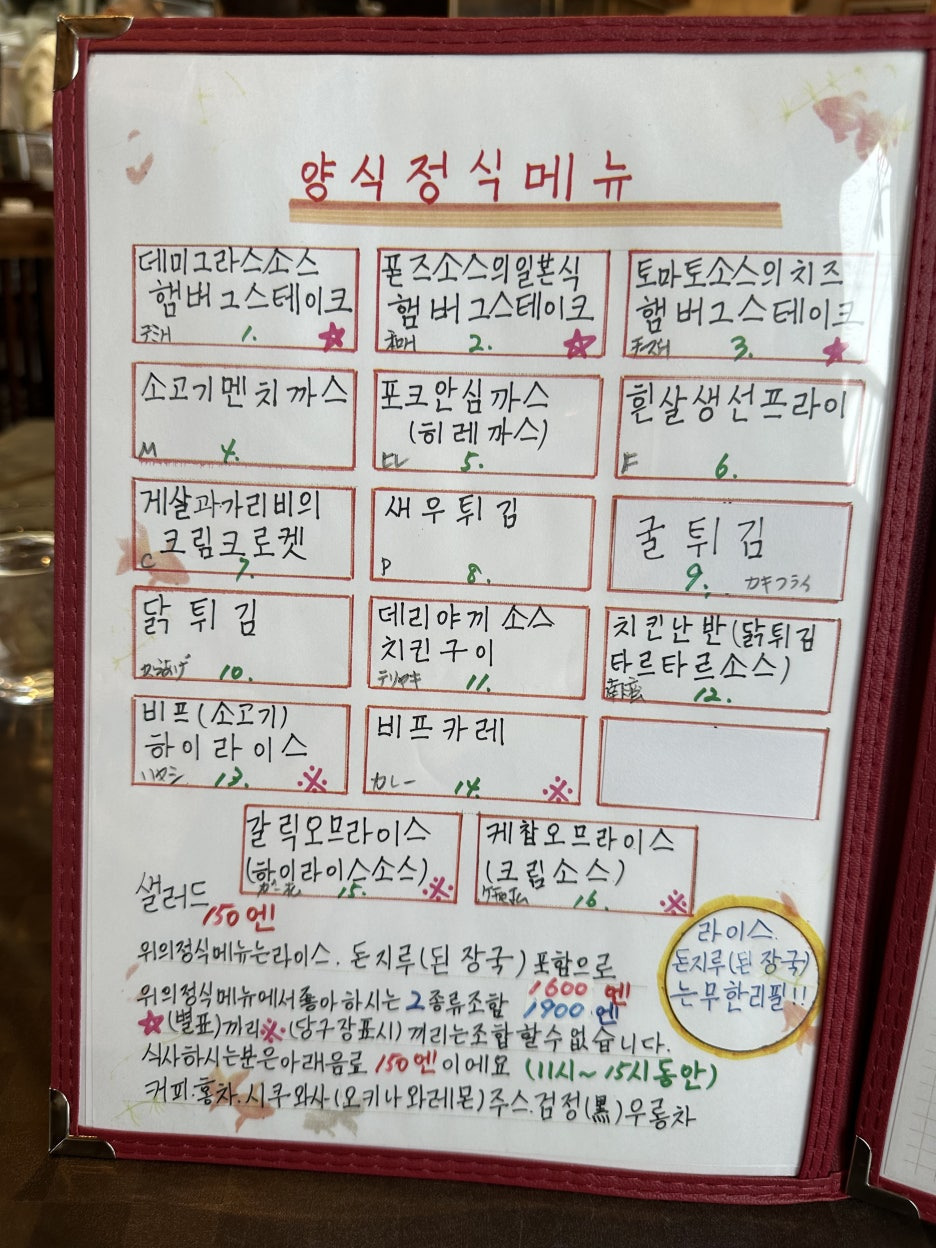 양식정식메뉴
데미그라스소스
햄버그스테이크
1. ☆
폰즈소스의일본식
햄버그스테이크
2. ☆
토마토소스의치즈
햄버그스테이크
3. ☆
소고기멘치까스
M 4.
포크안심까스
(히레까스)
ヒレ 5.
흰살생선프라이
F 6.
게살과가리비의
크림크로켓
C 7.
새우튀김
P 8.
굴튀김
9. カキフライ
닭튀김
からあげ 10.
데리야끼소스
치킨구이
テリヤキ 11.
치킨난반(닭튀김
타르타르소스)
南蛮 12.
비프(소고기)
하이라이스
ハヤシ 13. ※
비프카레
カレー 14. ※
갈릭오므라이스
(하이라이스소스)
15. ※
케찹오므라이스
(크림소스)
16. ※
샐러드
150엔
라이스.
돈지루(된장국)
는무한리필!!
위의정식메뉴는라이스. 돈지루(된장국)포함으로
1600엔
위의정식메뉴에서좋아하시는2종류조합 1900엔
☆(별표)끼리※(당구장표시)끼리는조합할수없습니다.
식사하시는분은아래음료 150엔이에요 (11시~15시동안)
커피·홍차.시쿠와사(오키나와레몬)주스.검정(黒)우롱차